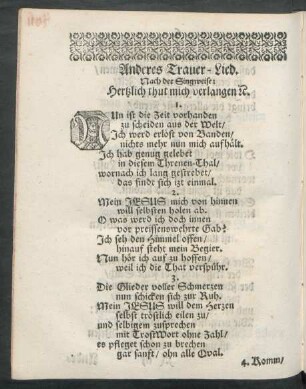 Anderes Trauer-Lied.
Nach der Singweise:
Hertzlich thut mich verlangen ꝛc.
1.
NUn ist die Zeit vorhanden
zu scheiden aus der Welt/
Ich werd erlöst von Banden/
nichts mehr nun mich aufhält.
Ich hab genug gelebet
in diesem Threnen-Thal/
wornach ich lang gestrebet/
das findt sich izt einmal.
2.
Mein JESUS mich von hinnen
will selbsten holen ab.
O was werd ich doch innen
vor preissenswehrte Gab?
Ich seh den Himmel offen/
hinauf steht mein Begier.
Nun hör ich auf zu hoffen/
weil ich die That verspühr.
3.
Die Glieder voller Schmerzen
nun schicken sich zur Ruh.
Mein JESUS will dem Herzen
selbst tröstlich eilen zu/
und selbigem zusprechen
mit TrostWort ohne Zahl/
es pfleget schon zu brechen
gar sanft/ ohn alle Qval.
4. Komm/